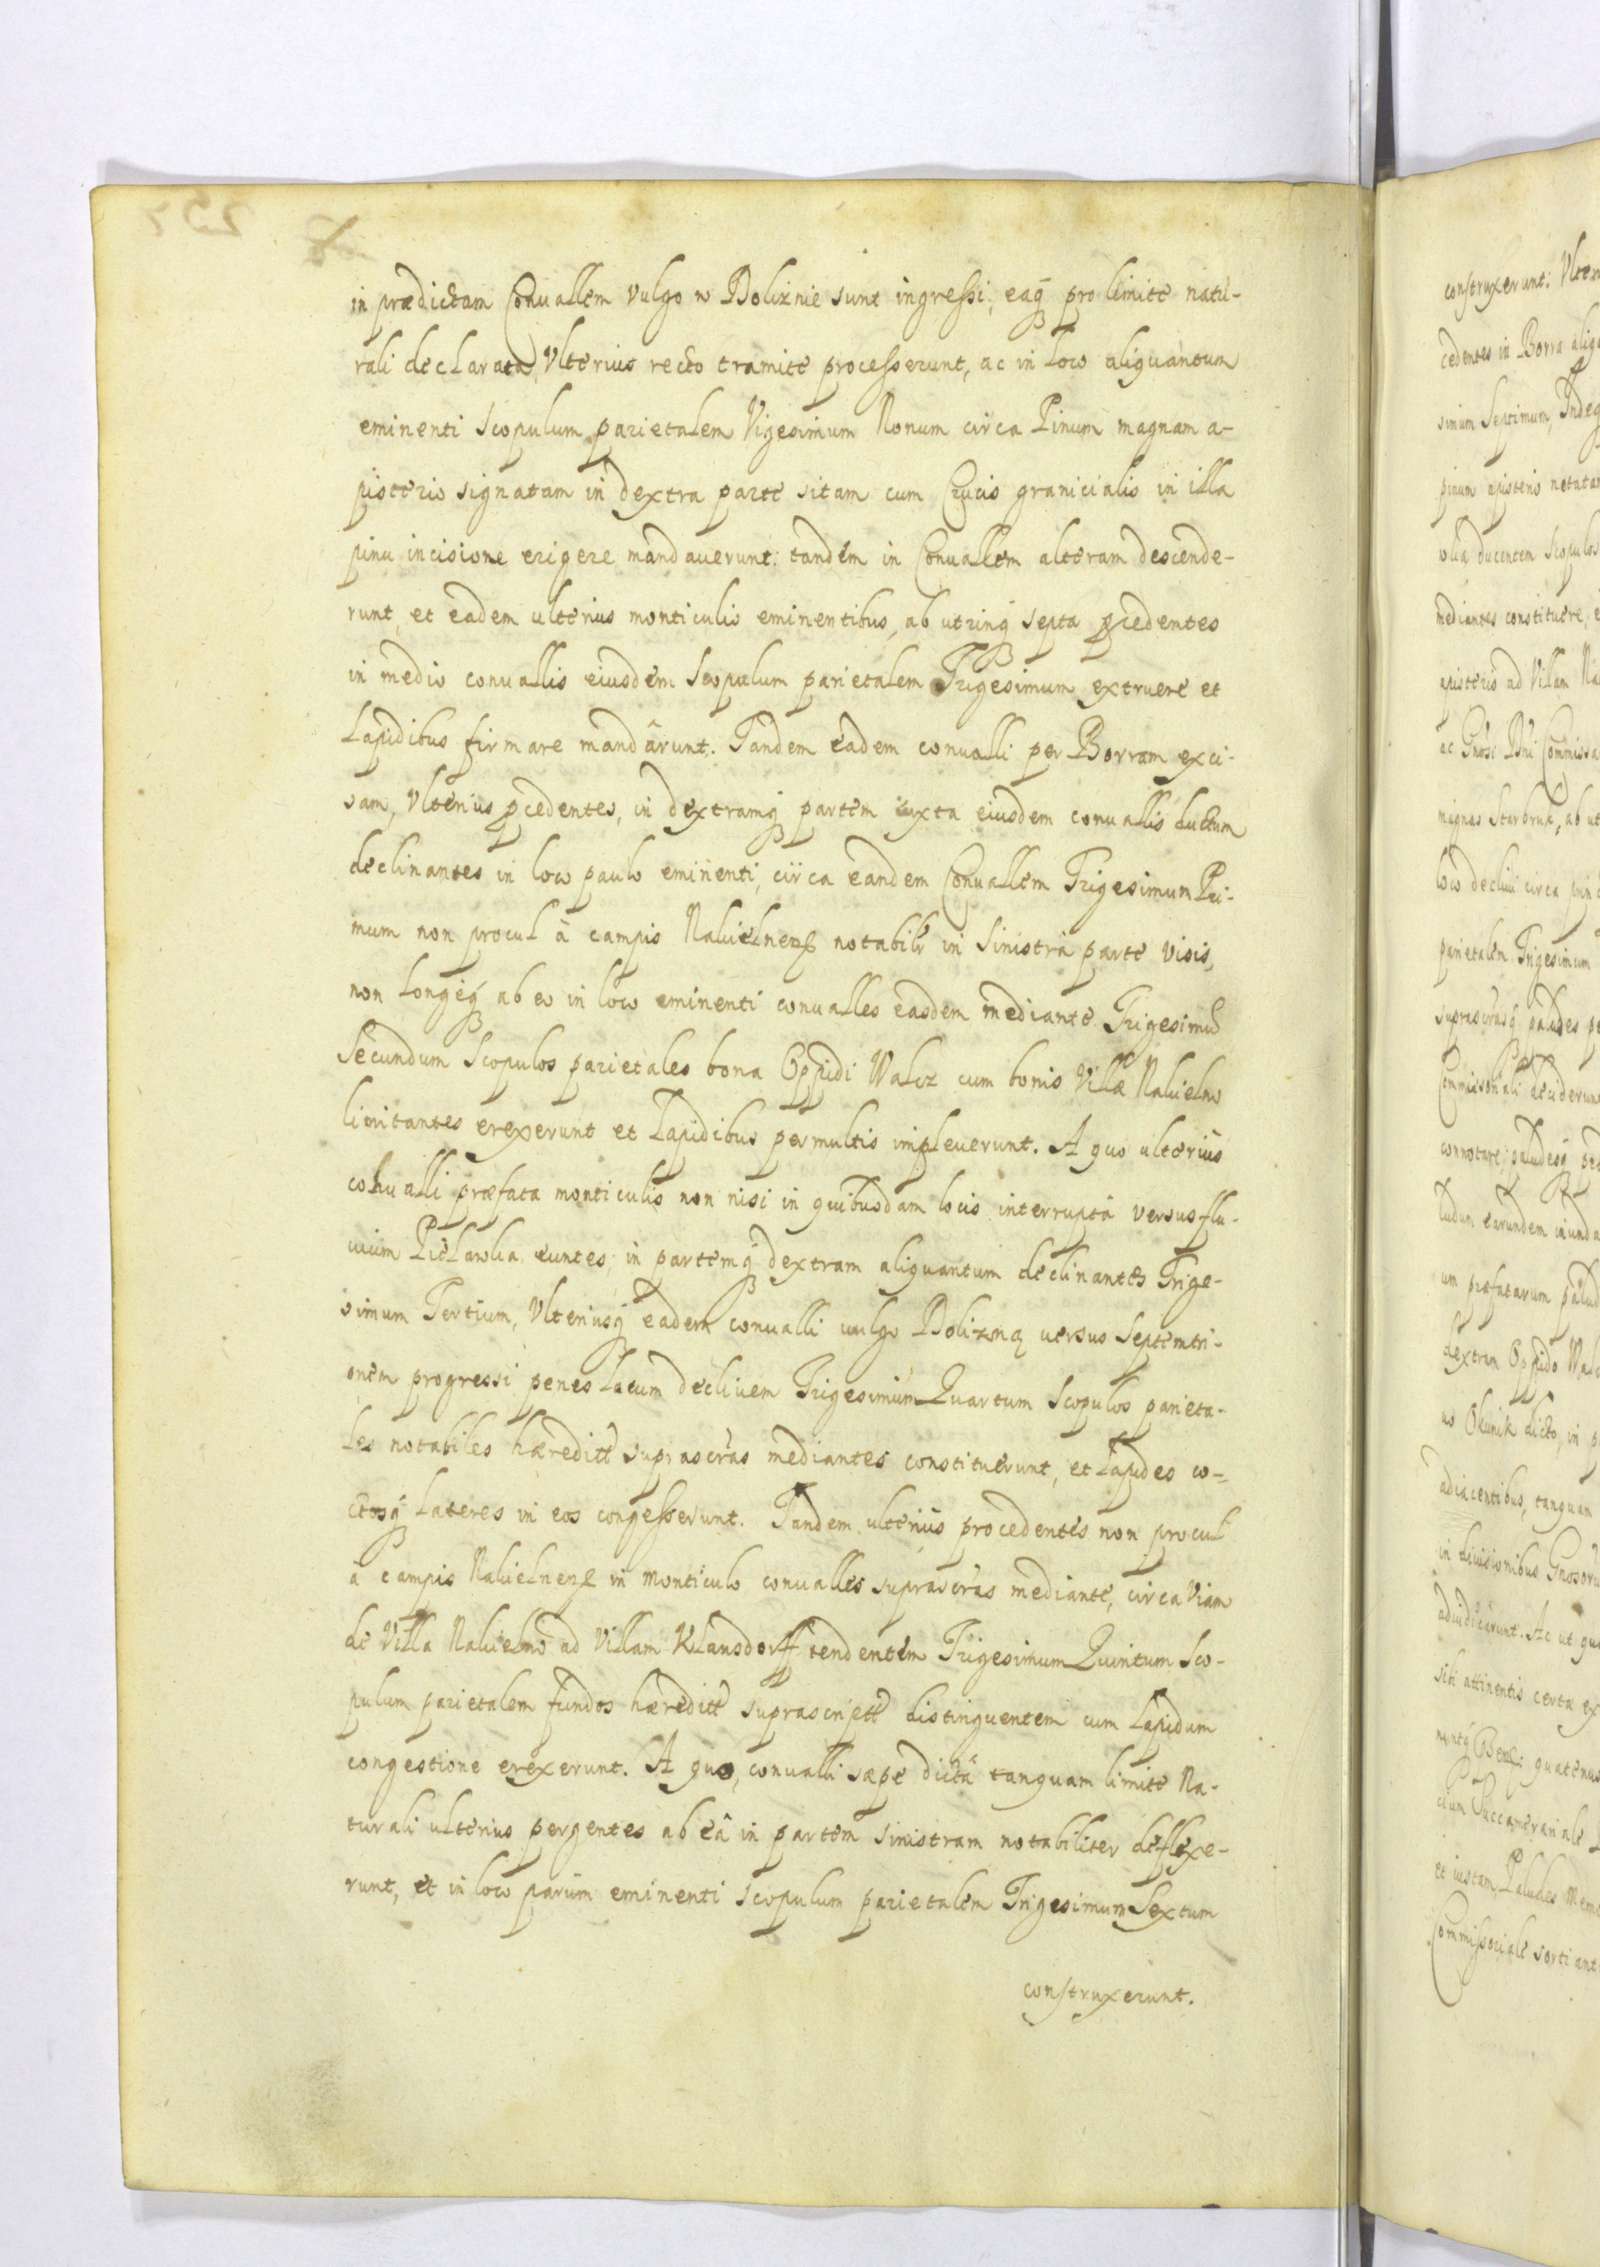 in prædictam Conuallem vulgo w Dolixnie sunt ingressi, eaq̃ pro limite natu-
rali declarata, Vlterius recto tramite processerunt, ac in loco aliquantum
eminenti scopulum parietalem Vigesimum Nonum circa Pinum magnam a-
pisterio signatam in dextra parte sitam cum Crucis granicialis in illa
pinu incisione erigere mandauerunt: tandem in Conuallem alteram descende-
runt, et eadem ulterius monticulis eminentibus, ab utrinq̃ septa ꝓcedentes
in medio conuallis eiusdem Scopulum parietalem Trigesimum extruere et
Lapidibus firmare mandârunt. Tandem eadem conualli per Borram exci-
sam, Vlterius ꝓcedentes, in dextramq̃ partem iuxta eiusdem conuallis ductum
declinantes in loco paulo eminenti, circa eandem Conuallem Trigesimum Pri-
mum non procul à campis notabilr in Sinistra parte visis,
non Longeq̃ ab eo in loco eminenti conualles easdem mediante Trigesimũ
Secundum Scopulos parietales bona Oppidi Walcz cum bonis Villæ
limitantes erexerunt et Lapidibus permultis impleuerunt. A quo ulterius
conualli præfata monticulis non nisi in quibusdam locis interruptâ versus flu-
uium euntes, in partemq̃ dextram aliquantum declinantes Trige-
simum Tertium, Vlteriusq̃ eadem conualli uulgo uersus Septemtri-
onem progressi penes Lacum decliuem Trigesimum Quartum Scopulos parieta-
les notabiles hæreditt suprascrãs mediantes constituerunt, et Lapides co-
ctosq̃ Lateres in eos congesserunt. Tandem ulterius procedentes non procul
a campis in Monticulo conualles suprascrãs mediante, circa Viam
de Villa ad Villam Klausdorff tendentem Trigesimum Quintum Sco-
pulum parietalem fundos hæreditt suprascriptt distinguentem cum Lapidum
congestione erexerunt. A quo, conualli sæpe dictâ tanquam limite Na-
turali ulterius pergentes ab eâ in partem sinistram notabiliter deflexe-
runt, et in loco parum eminenti scopulum parietalem Trigesimum Sextum
construxerunt.
construxerunt:
cedentes in Borra
simum Septimum,
pinum apisterio
ducentem Scopulos
mediantes constituere,
apisterio ad Villam
ab
loco decliui circa
parietalem Trigesimum
paludes
connotare,
tudum earundem
um præfatarum
dextram Oppido
no Okunik dicto, in
adiacentibus, tanquam
in diuisionibus
adiudicârunt. Ac ut
sibi attinentis certa
quatenus
Succamerariale
et iustam Paludes
sortiant